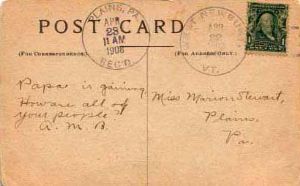 PLAINS, PA.
APR
23
11 AM
1908
REC'D.
POST CARD
(FOR CORRESPONDENCE.)
(FOR ADDRESS ONLY.)
VT.
Papa is gaining.
How are all of
your people?
A. M. B.
Miss Marion Stewart,
Plains,
Pa.